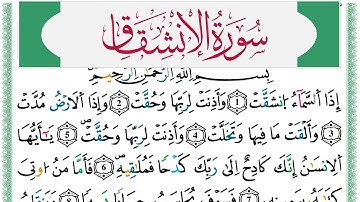 سُورَةُ الاِنْشِقَاقِ
بِسْمِ اللّٰهِ الرَّحْمٰنِ الرَّحِيْمِ
اِذَا السَّمَآءُ انْشَقَّتْ ﴿1﴾ وَاَذِنَتْ لِرَبِّهَا وَحُقَّتْ ﴿2﴾ وَاِذَا الْاَرْضُ مُدَّتْ
﴿3﴾ وَاَلْقَتْ مَا فِيهَا وَتَخَلَّتْ ﴿4﴾ وَاَذِنَتْ لِرَبِّهَا وَحُقَّتْ ﴿5﴾ يٰٓاَيُّهَا
الْاِنْسَانُ اِنَّكَ كَادِحٌ اِلٰى رَبِّكَ كَدْحًا فَمُلٰقِيهِ ﴿6﴾ فَاَمَّا مَنْ اُوتِىَ